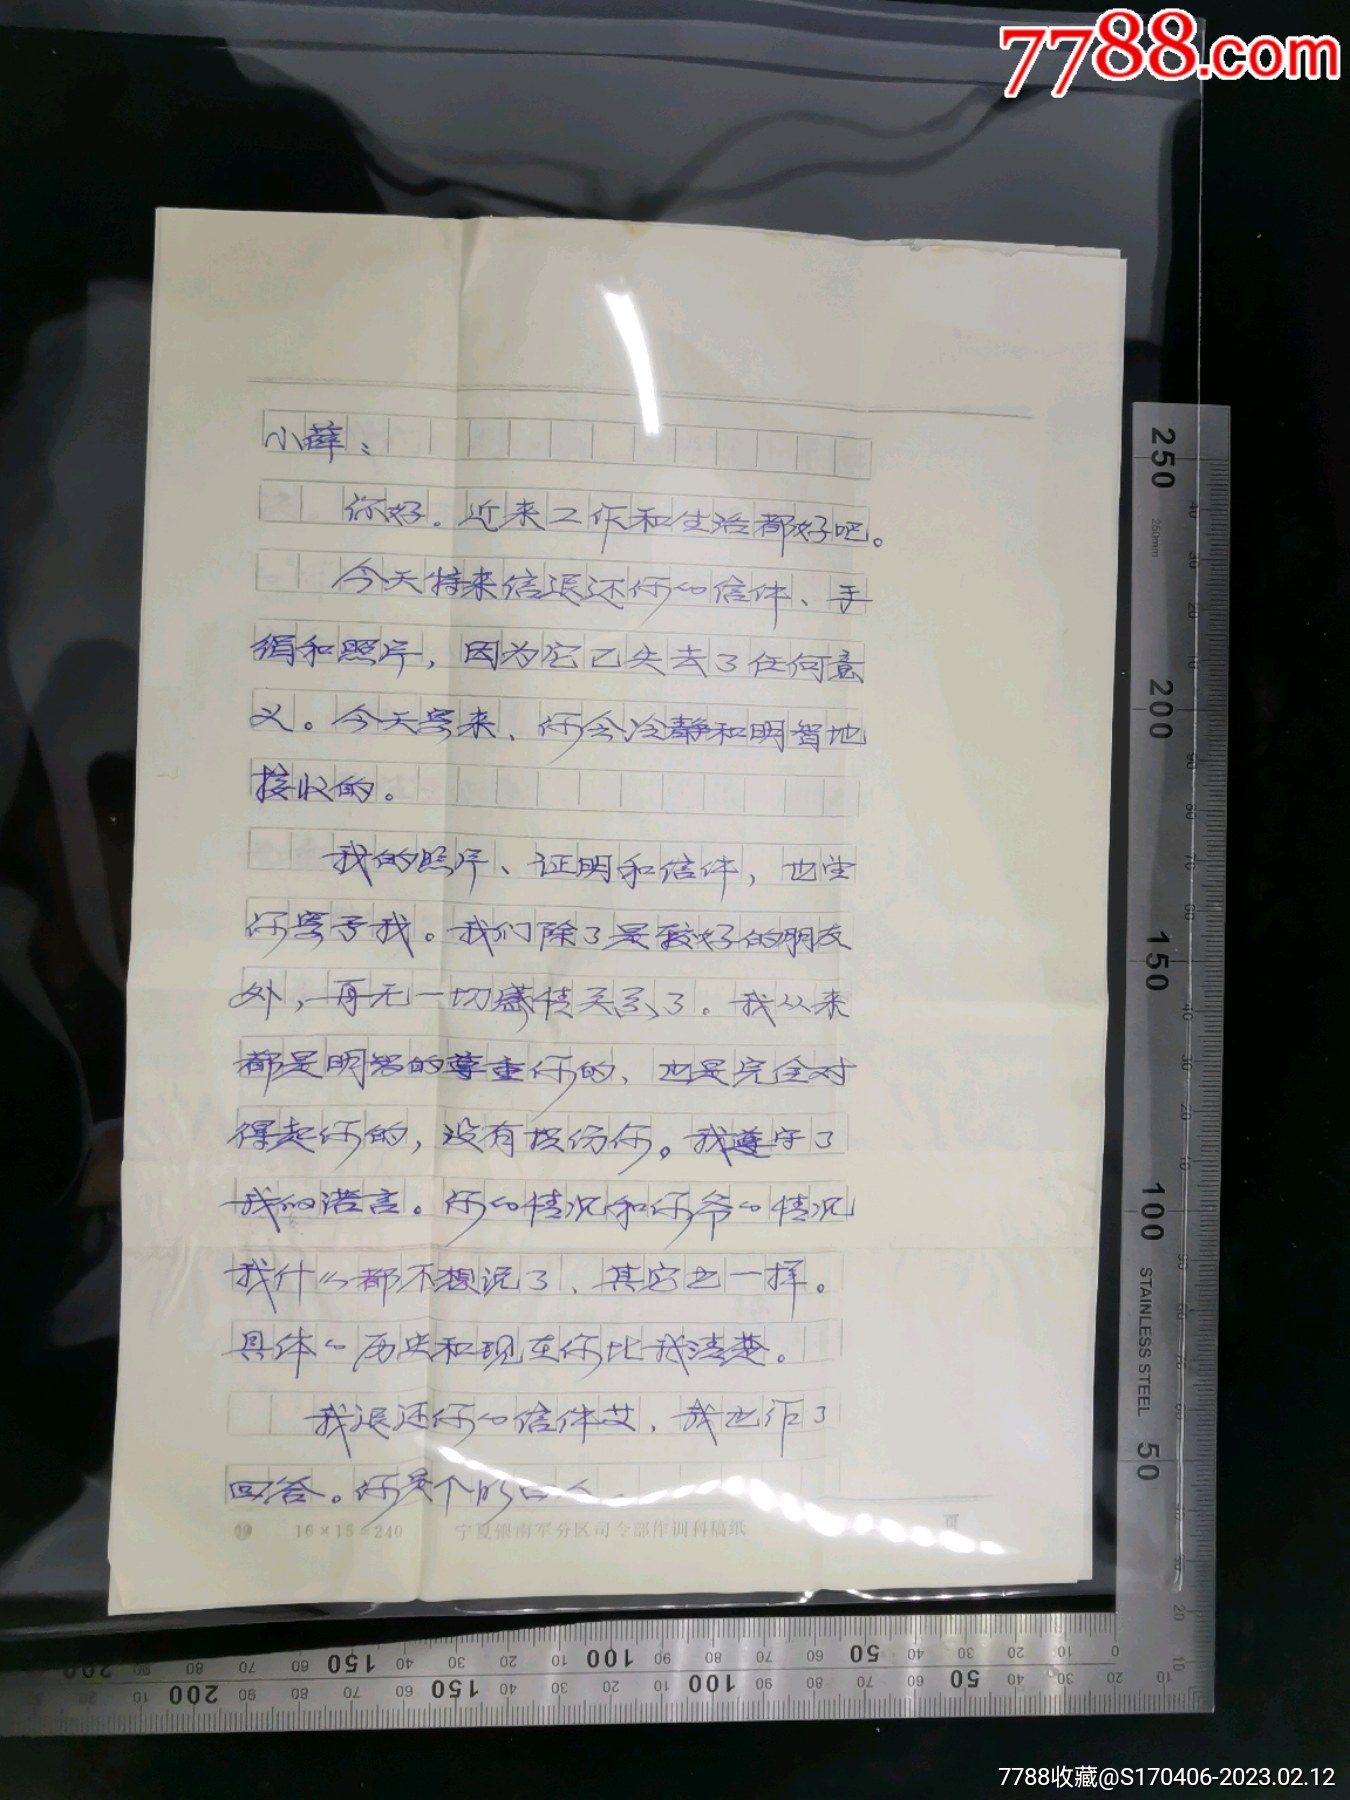 7788.com
小薛：
你好。近来工作和生活都好吧。
今天特来信退还你的信件、手
绢和照片，因为它已失去了任何意
义。今天寄来、你会冷静和明智地
接收的。
我的照片、证明和信件，也望
你寄予我。我们除了是较好的朋友
外，再无一切感情关系了。我从来
都是明智的尊重你的、也是完全对
得起你的，没有损伤你。我遵守了
我的诺言。你的情况和你爷的情况
我什么都不想说了、其它也一样。
具体的历史和现在你比我清楚。
我退还你的信件，我也作了
回答。你是个明白人。
09 16×15=240 宁夏银南军分区司令部作训科稿纸 页
250
250mm
200
150
100
STAINLESS STEEL
50
200 90 80 70 60 150 40 30 20 10 100 90 80 70 60 50 40 30 20 10 0
200 90 80 70 60 150 40 30 20 10 100 90 80 70 60 50 40 30 20 10
7788收藏@S170406-2023.02.12